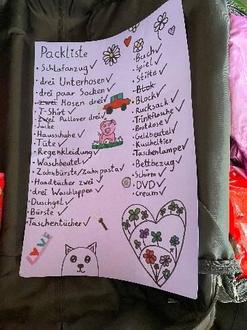 Packliste
• Schlafanzug ✓
• drei Unterhosen ✓
• drei paar Socken ✓
• zwei Hosen drei ✓
• T-Shirt ✓
• zwei Pullover drei ✓
• Jacke
• Hausshuhe ✓
• Tüte ✓
• Regenkleidung ✓
• Waschbeutel ✓
• Zahnbürste/Zahnpasta ✓
• Handtücher zwei ✓
• drei Waschlappen ✓
• Duschgel ✓
• Bürste ✓
• Taschentücher ✓
LOVE
• Buch ✓
• Spiel ✓
• Stifte ✓
• Block ✓
• Rucksack ✓
• Trinkflasche ✓
• Brotdose ✓
• Geldbeutel ✓
• Kuscheltier ✓
• Taschenlampe ✓
• Bettbezug ✓
• Schirm ✓
• DVD ✓
• Creme ✓